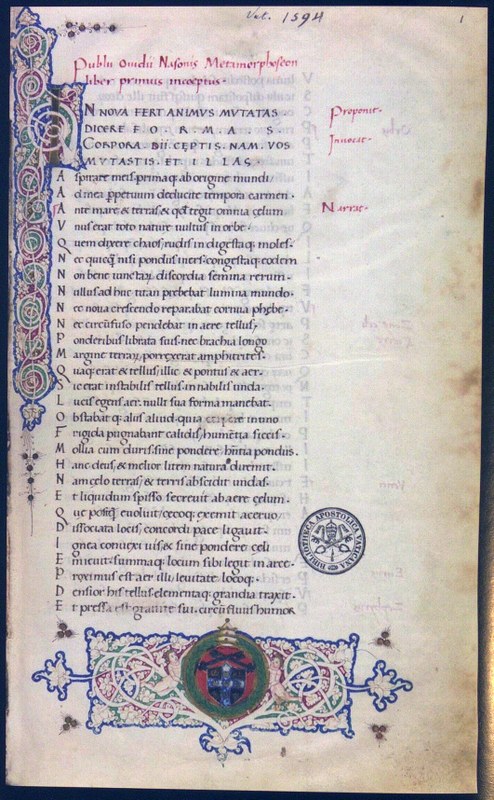 Vat. 1594
1
Publii Ovidii Nasonis Metamorphoseon
liber primus incoeptus.
IN NOVA FERT ANIMVS MVTATAS
DICERE FORMAS
CORPORA. DII CĘPTIS. NAM. VOS
MVTASTIS. ET ILLAS,
Proponit.
Inuocat.
A spirate meis. primaq; ab origine mundi,
A d mea ppetuum deducite tempora carmen.
A nte mare & terras & qd tegit omnia cęlum
Narrat.
V nus erat toto naturę uultus in orbe.
Q uem dixere chaos, rudis indigestaq; moles.
N ec quicq; nisi pondus iners. congestaq; eodem
N on bene iunctar discordia semina rerum.
N ullus adhuc titan prebebat lumina mundo.
N ec noua crescendo reparabat cornua phębe.
N ec circufuso pendebat in aere tellus,
P onderibus librata suis. nec brachia longo
M argine terrar porrexerat amphitrites.
Q uaq; erat & tellus, illic & pontus & aer.
S ic erat instabilis tellus. innabilis unda.
L ucis egens aer. nulli sua forma manebat.
O bstabat q; aliis aliud. quia corpore in uno
F rigida pugnabant calidis, humētia siccis.
M ollia cum duris. sine pondere hńtia pondus.
H anc deus, & melior litem natura diremit.
N am cęlo terras, & terris abscidit undas.
E t liquidum spisso secreuit ab aere cęlum.
Q uę postq; euoluit, cęcoq; exemit aceruo
D issociata locis, concordi pace ligauit.
I gnea conuexi uis & sine pondere cęli
E micuit. summaq; locum sibi legit in arce.
P roximus est aer illi leuitate locoq;.
D ensior his tellus. elementaq; grandia traxit.
E t pressa est grauitate sui. circufluus humor
BIBLIOTHECA APOSTOLICA VATICANA